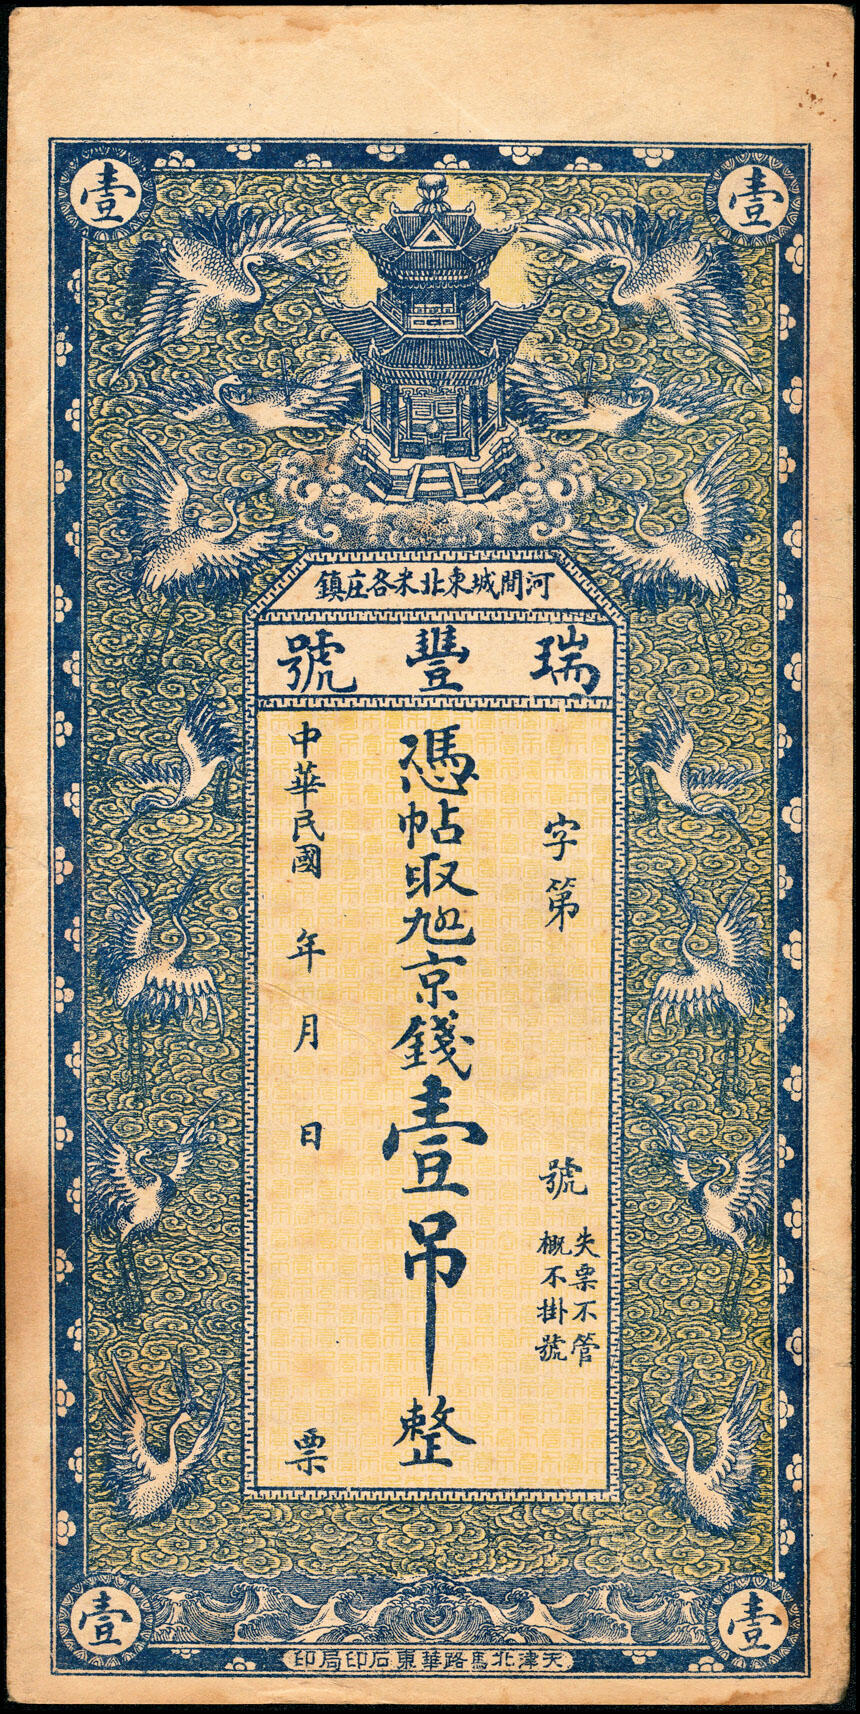 壹 壹
河間城東北米各庄鎮
瑞豐號
字第 號
失票不管
概不掛號
憑帖取京錢壹吊整
中華民國 年 月 日 票
壹 壹
天津北馬路華東石印局印